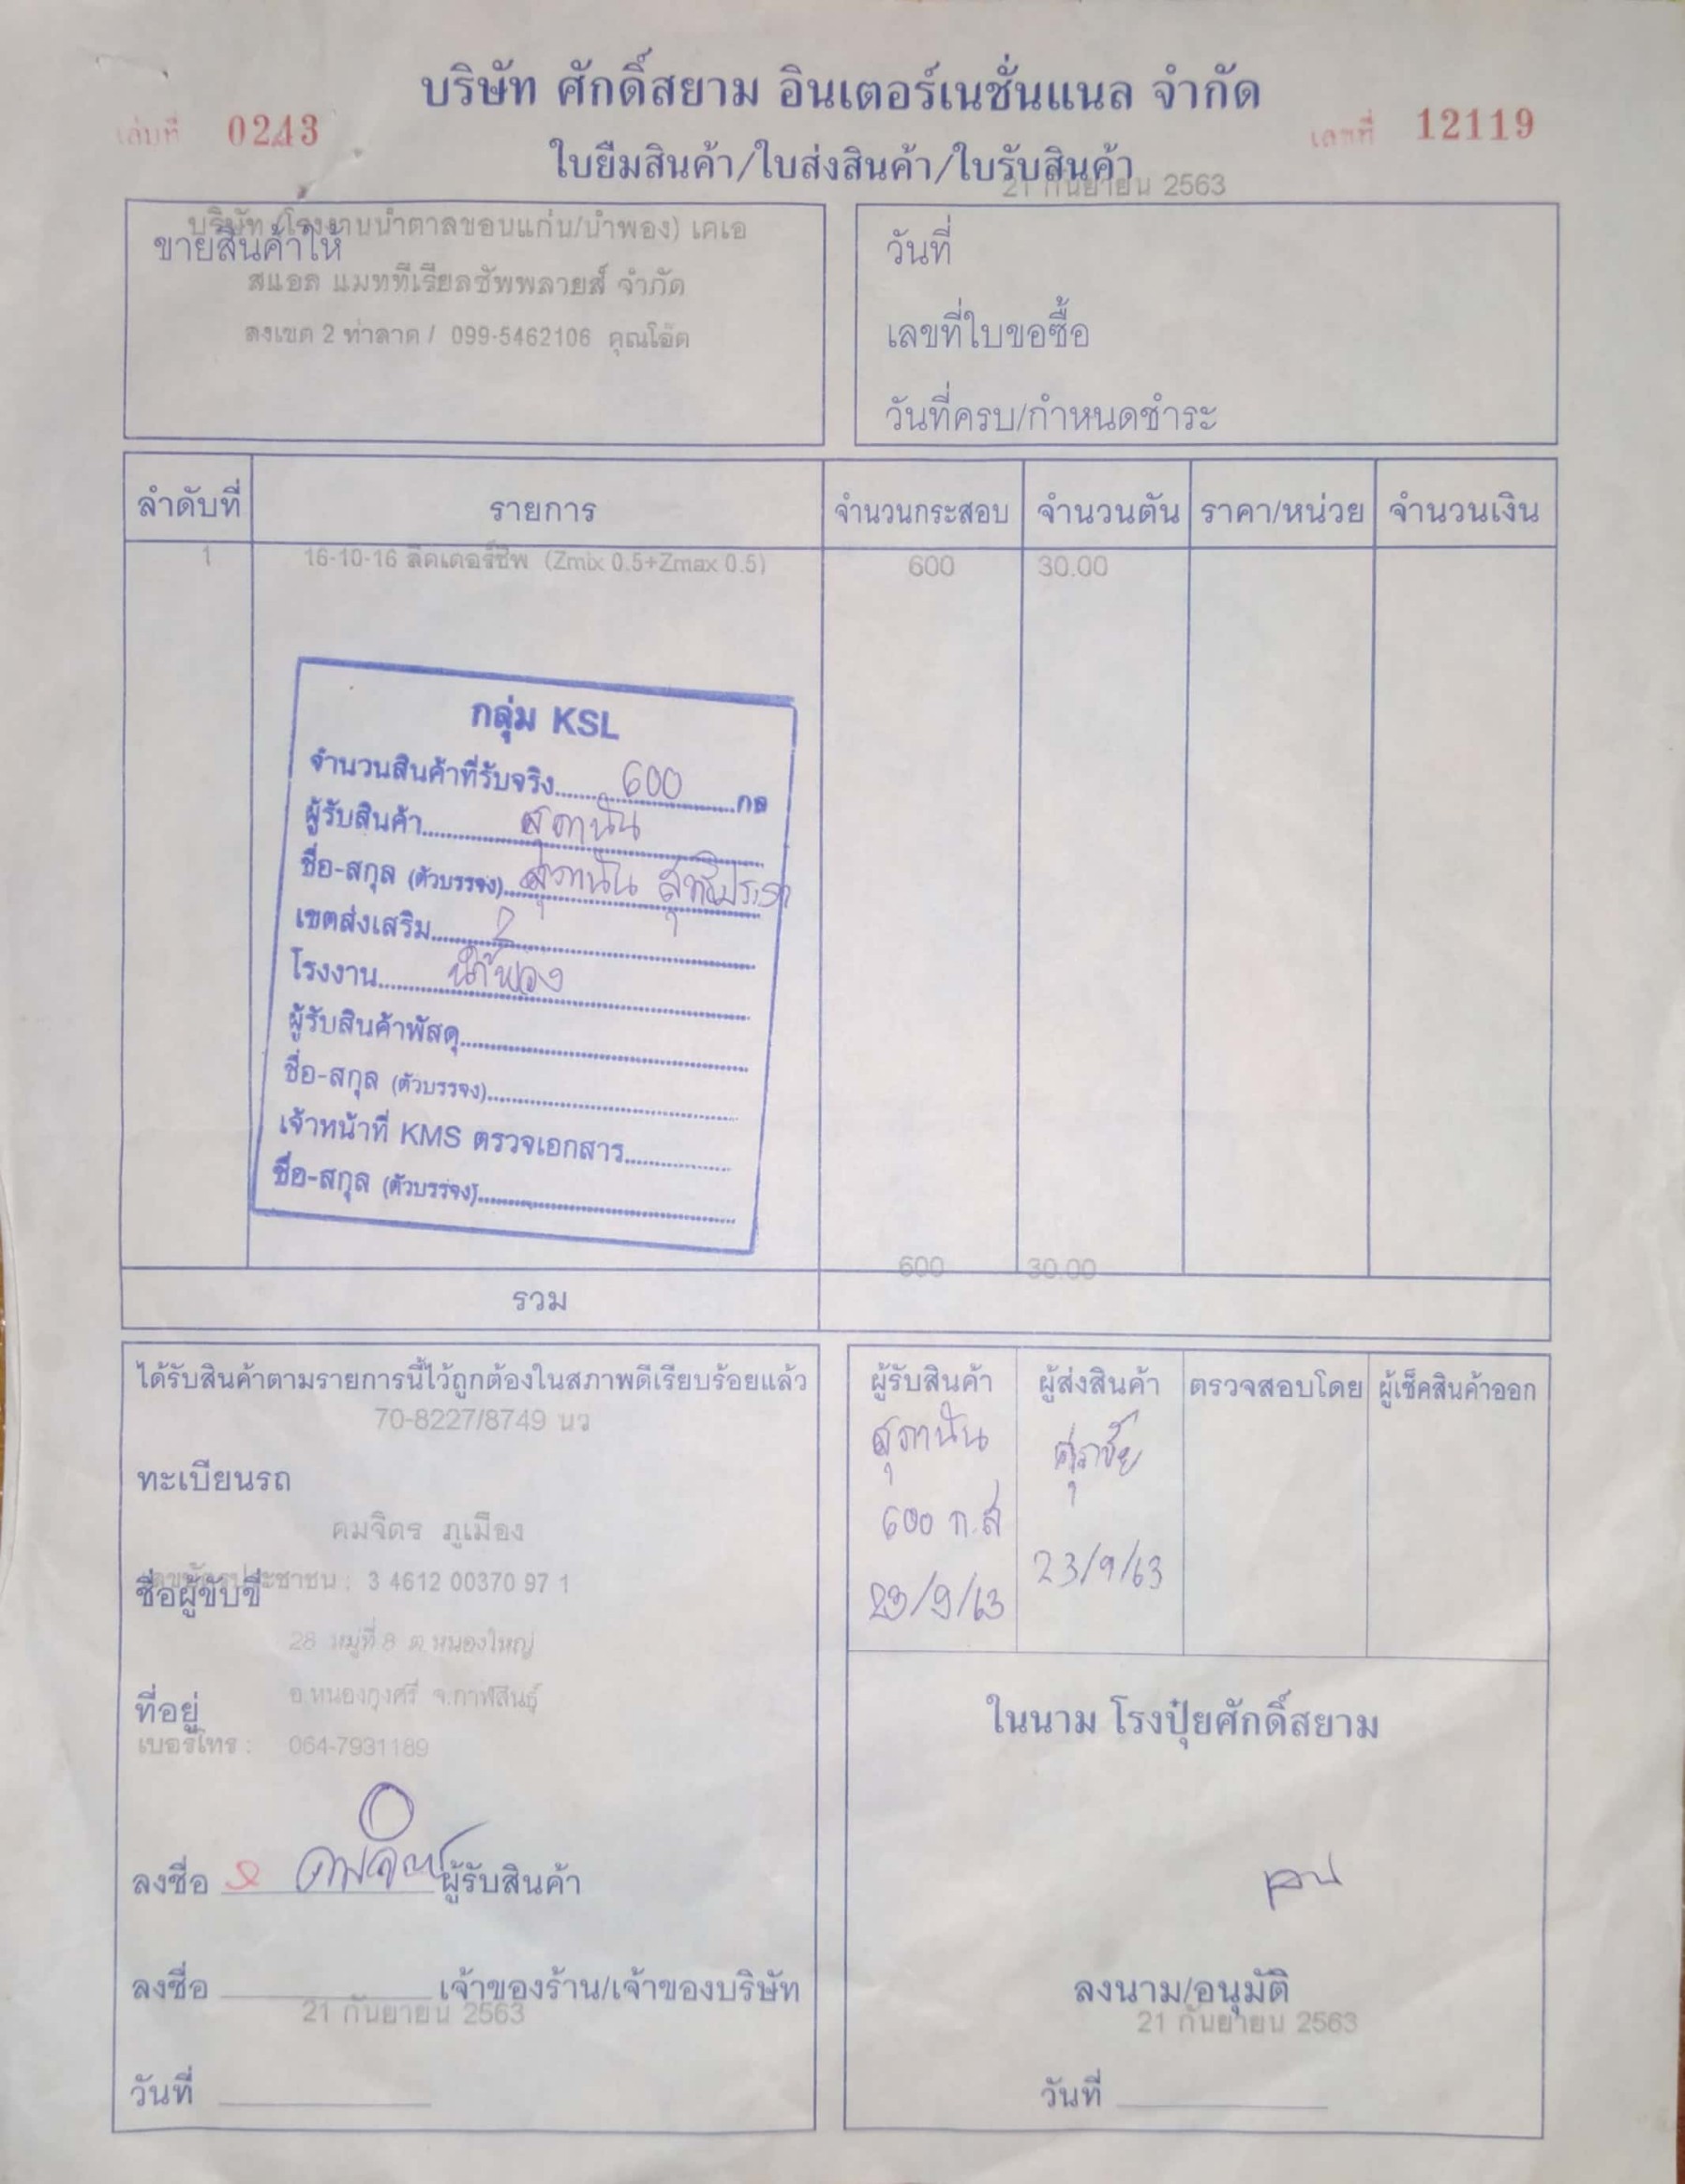 บริษัท ศักดิ์สยาม อินเตอร์เนชั่นแนล จำกัด
เล่มที่ 0243
เลขที่ 12119
ใบยืมสินค้า/ใบส่งสินค้า/ใบรับสินค้า
21 กันยายน 2563
บริษัท (โรงงานน้ำตาลขอนแก่น/น้ำพอง) เคเอ
ขายสินค้าให้
สแอล แมททีเรียลซัพพลายส์ จำกัด
ลงเขต 2 ท่าลาด / 099-5462106 คุณโอ๊ต
วันที่
เลขที่ใบขอซื้อ
วันที่ครบ/กำหนดชำระ
ลำดับที่ รายการ จำนวนกระสอบ จำนวนตัน ราคา/หน่วย จำนวนเงิน
1 16-10-16 ลีดเดอร์ชิพ (Zmix 0.5+Zmax 0.5) 600 30.00
กลุ่ม KSL
จำนวนสินค้าที่รับจริง 600 กส
ผู้รับสินค้า สุภานัน
ชื่อ-สกุล (ตัวบรรจง) สุภานัน
เขตส่งเสริม 2
โรงงาน น้ำพอง
ผู้รับสินค้าพัสดุ
ชื่อ-สกุล (ตัวบรรจง)
เจ้าหน้าที่ KMS ตรวจเอกสาร
ชื่อ-สกุล (ตัวบรรจง)
600 30.00
รวม
ได้รับสินค้าตามรายการนี้ไว้ถูกต้องในสภาพดีเรียบร้อยแล้ว
70-8227/8749 นว
ทะเบียนรถ
คมจิตร ภูเมือง
เลขบัตรประชาชน : 3 4612 00370 97 1
ชื่อผู้ขับขี่
28 หมู่ที่ 8 ต.หนองใหญ่
อ.หนองกุงศรี จ.กาฬสินธุ์
ที่อยู่
เบอร์โทร : 064-7931189
ลงชื่อ คมจิตร ผู้รับสินค้า
ลงชื่อ เจ้าของร้าน/เจ้าของบริษัท
21 กันยายน 2563
วันที่
ผู้รับสินค้า ผู้ส่งสินค้า ตรวจสอบโดย ผู้เช็คสินค้าออก
สุภานัน สุรชัย
600 ก.ส
23/9/63 23/9/63
ในนาม โรงปุ๋ยศักดิ์สยาม
ลงนาม/อนุมัติ
21 กันยายน 2563
วันที่